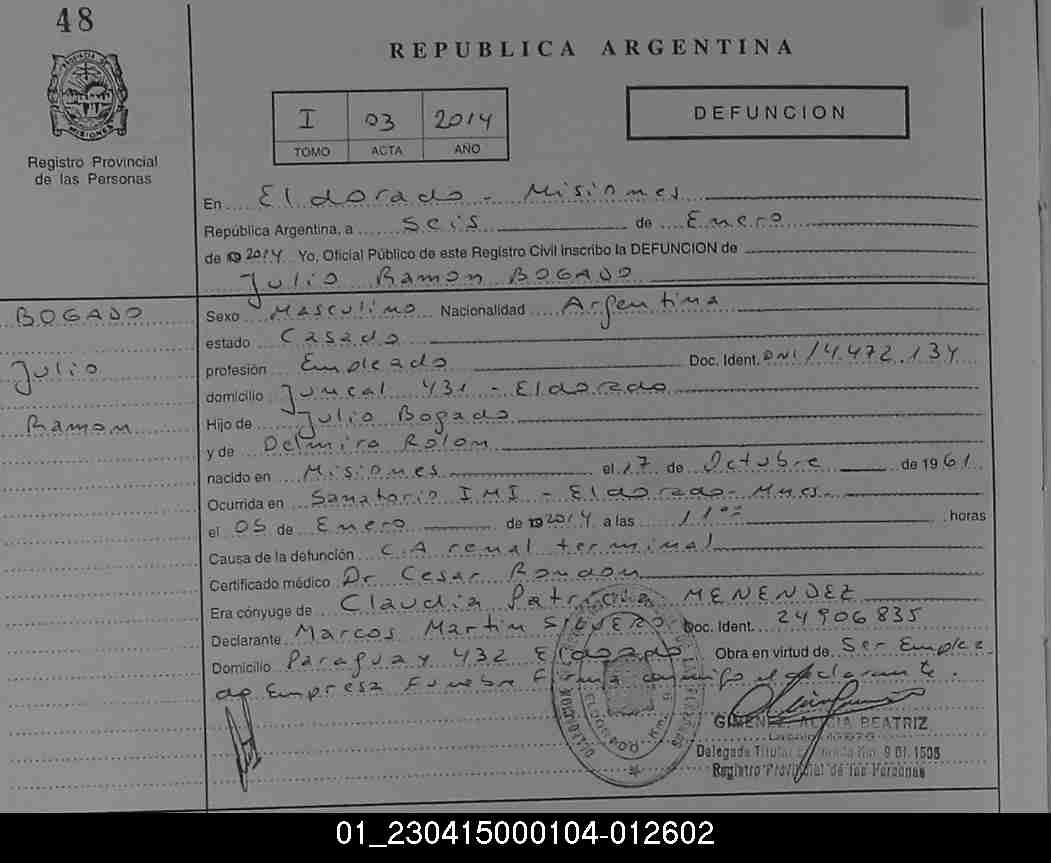 48
REPUBLICA ARGENTINA
I 03 2014
TOMO ACTA AÑO
DEFUNCION
Registro Provincial
de las Personas
En Eldorado - Misiones
República Argentina, a seis de Enero
de 2014 Yo, Oficial Público de este Registro Civil inscribo la DEFUNCION de
Julio Ramon BOGADO
BOGADO
Julio
Ramon
Sexo Masculino Nacionalidad Argentina
estado Casado
profesión Empleado Doc. Ident. DNI 14.472.134
domicilio Juncal 431 - Eldorado
Hijo de Julio Bogado
y de Delmira Rolon
nacido en Misiones el 17 de Octubre de 1961
Ocurrida en Sanatorio IMI - Eldorado - Mnes
el 05 de Enero de 2014 a las 11°° horas
Causa de la defunción CA renal terminal
Certificado médico Dr Cesar Rondon
Era cónyuge de Claudia Patricia MENENDEZ
Declarante Marcos Martin Doc. Ident. 24906835
Domicilio Paraguay 432 Eldorado Obra en virtud de Ser Emplea
do Empresa Funebre Firma conmigo el declarante.
GIMENEZ, ALICIA BEATRIZ
Delegada Titular
Registro Provincial de las Personas
01_230415000104-012602